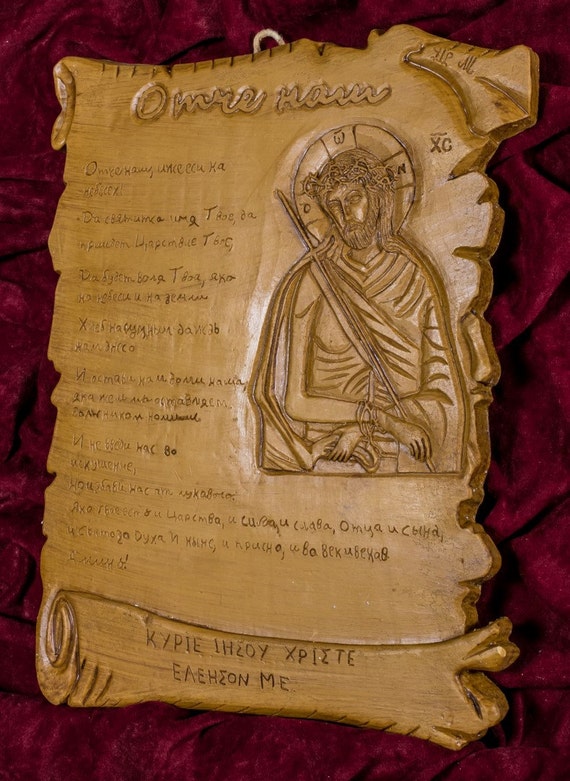 Отче наш
ІС М
Ѡ
О
Н
ХС
Отче наш, иже еси на
небесех!
Да святится имя Твое, да
приидет Царствие Твое,
Да будет воля Твоя, яко
на небеси и на земли
Хлеб насущный даждь
нам днесь
И остави нам долги наша
яко же и мы оставляем,
должником нашим
И не введи нас во
искушение,
но избави нас от лукавого.
Яко Твое есть и Царства, и сила, и слава, Отца и Сына,
и Святого Духа И ныне, и присно, и во веки веков
Аминь!
ΚΥΡΙΕ ΙΗΣΟΥ ΧΡΙΣΤΕ
ΕΛΕΗΣΟΝ ΜΕ